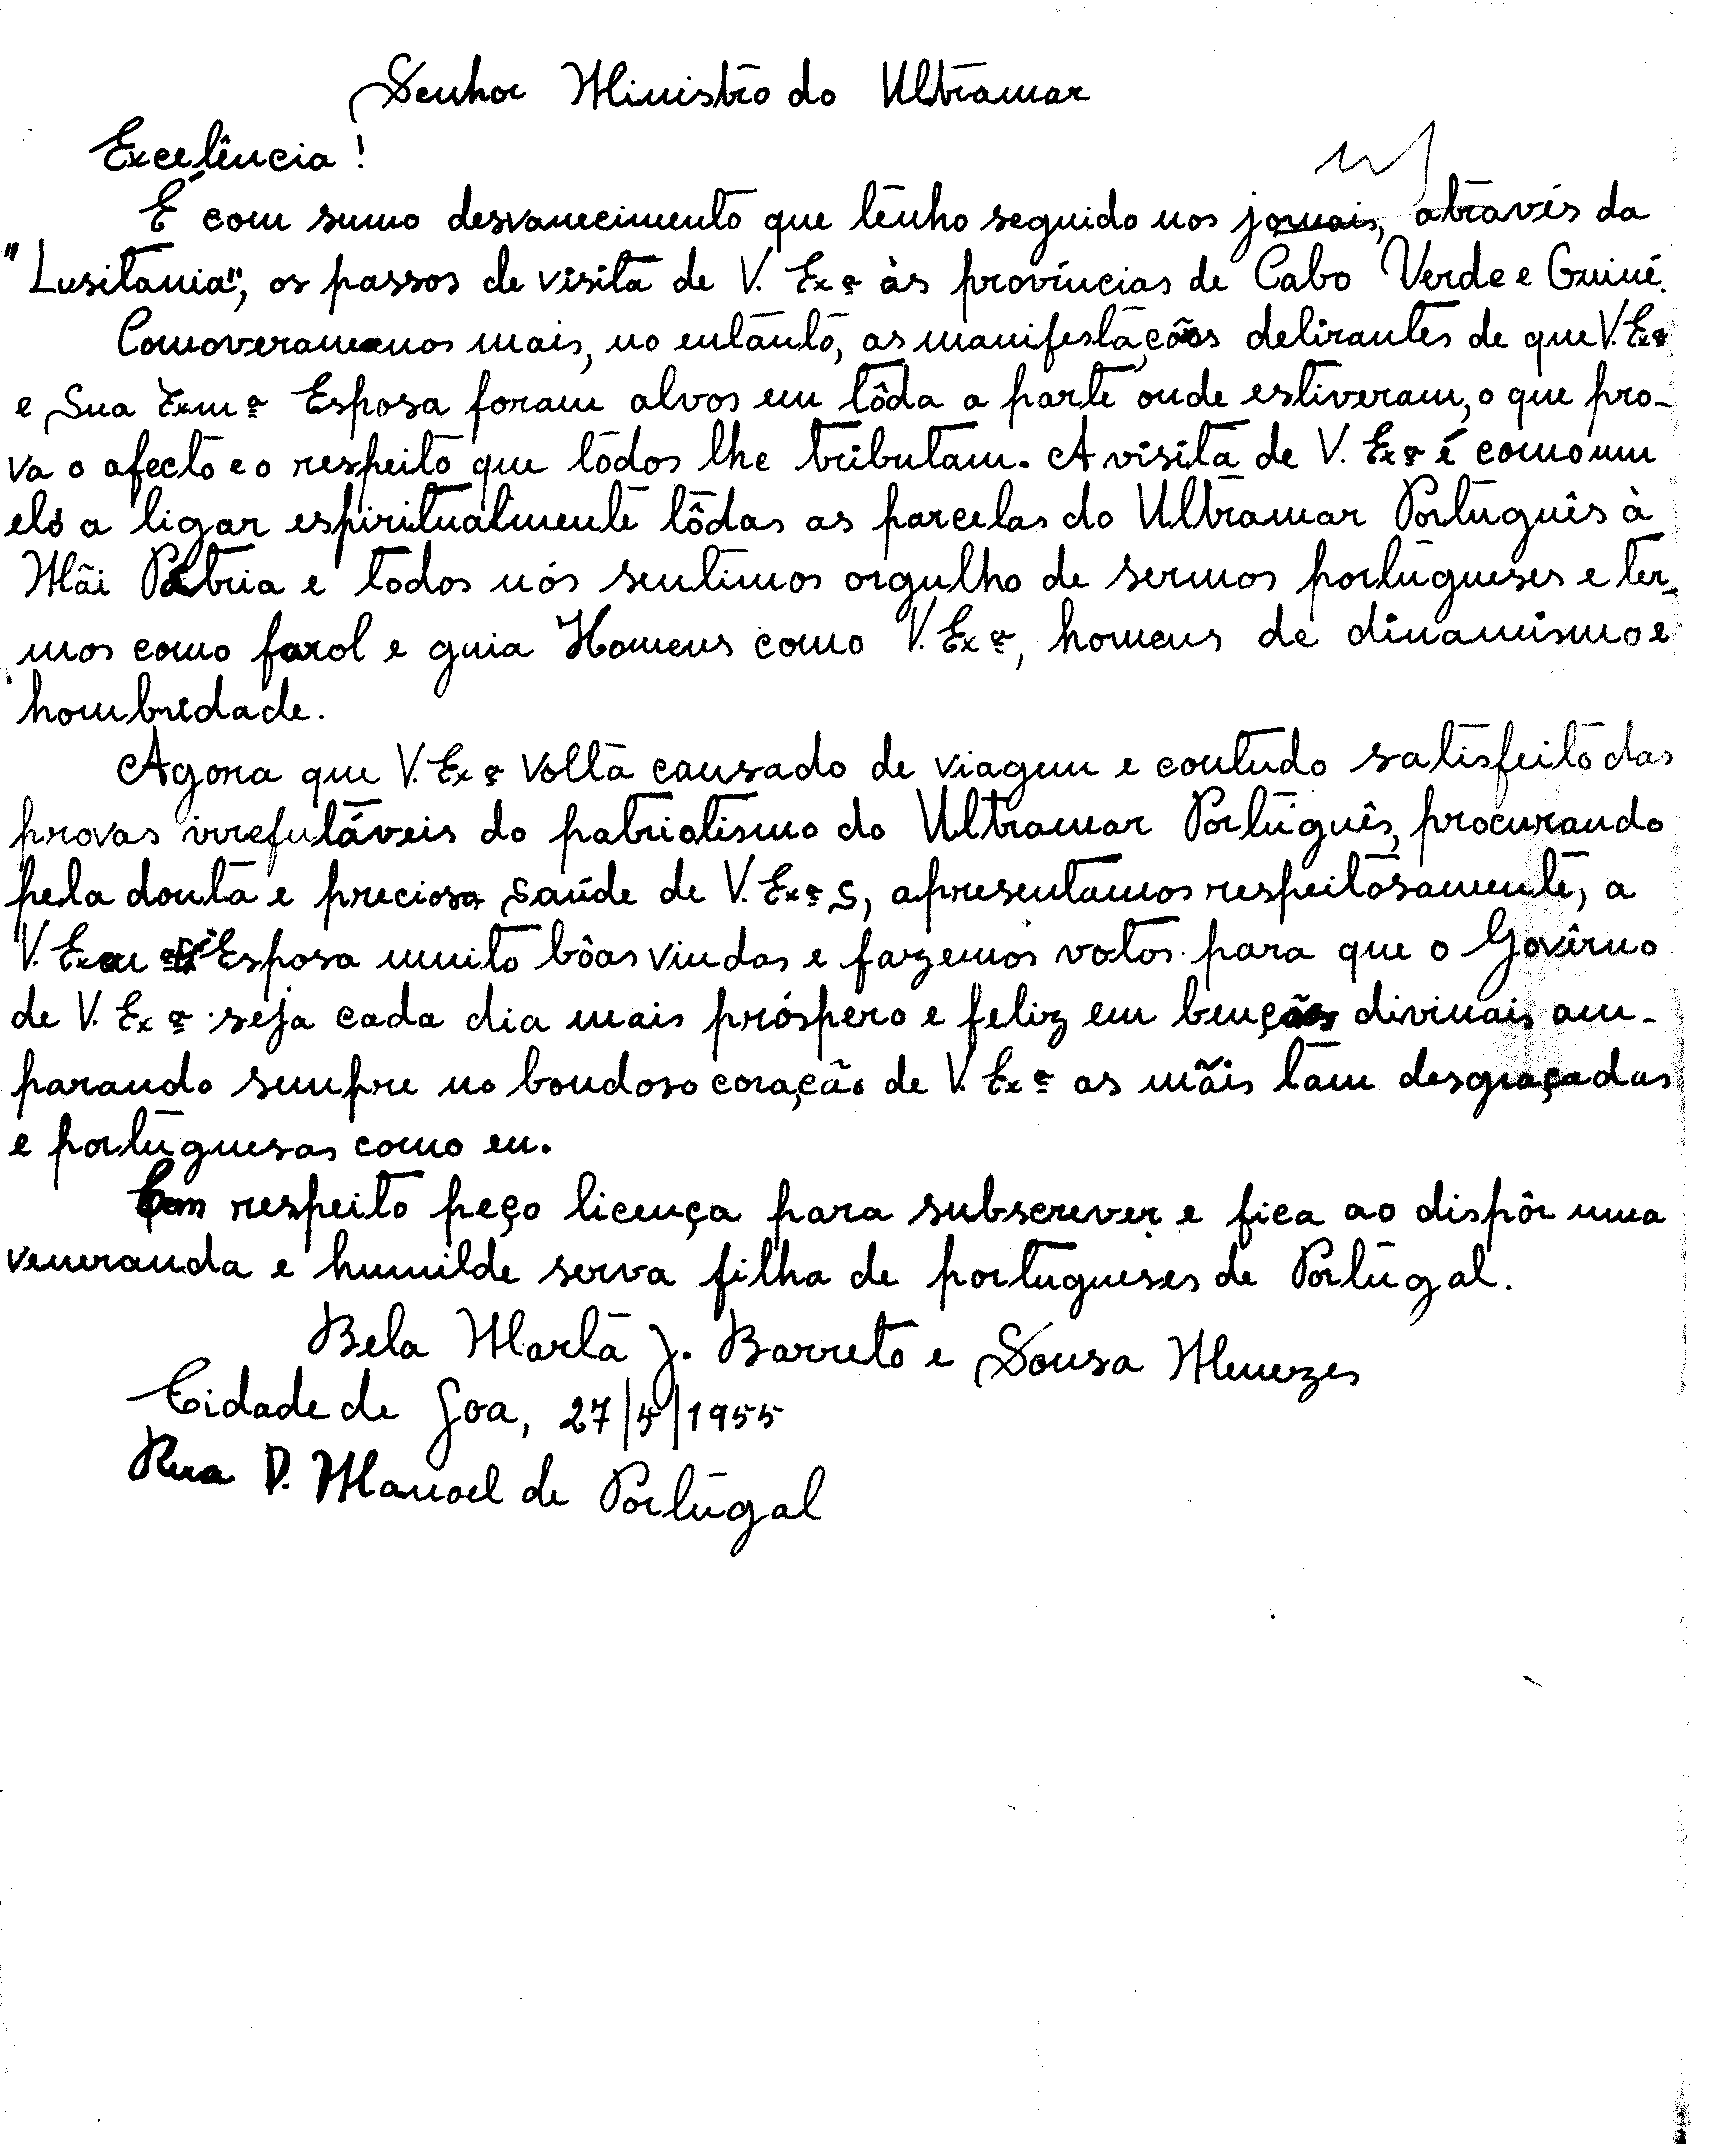 Senhor Ministro do Ultramar
Excelência!
É com sumo desvanecimento que tenho seguido nos jornais, através da
"Lusitania", os passos de visita de V. Exª às províncias de Cabo Verde e Guiné.
Comoveram-nos mais, no entanto, as manifestações delirantes de que V. Exª
e Sua Exmª Esposa foram alvos em tôda a parte onde estiveram, o que pro-
va o afecto e o respeito que todos lhe tributam. A visita de V. Exª é como um
elo a ligar espiritualmente tôdas as parcelas do Ultramar Português à
Mãi Pátria e todos nós sentimos orgulho de sermos portugueses e ter-
mos como farol e guia Homens como V. Exª, homens de dinamismo e
hombridade.
Agora que V. Exª volta cansado de viagem e contudo satisfeito das
provas irrefutáveis do patriotismo do Ultramar Português, procurando
pela douta e preciosa saúde de V. Exªs, apresentamos respeitosamente, a
V. Esposa muito bôas vindas e fazemos votos para que o Govêrno
de V. Exª seja cada dia mais próspero e feliz em benções divinais am-
parando sempre no bondoso coração de V. Exª as mãis tam desgraçadas
e portuguesas como eu.
Com respeito peço licença para subscrever e fica ao dispôr uma
veneranda e humilde serva filha de portugueses de Portugal.
Bela Marta J. Barreto e Sousa Menezes
Cidade de Goa, 27/5/1955
Rua D. Manoel de Portugal